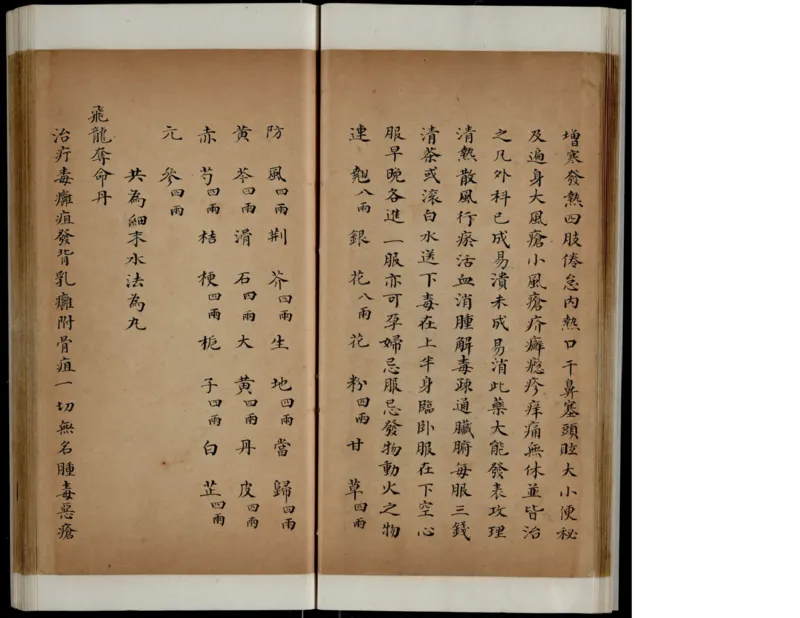 增寒發熱四肢倦怠內熱口干鼻塞頭眩大小便秘
及遍身大風瘡小風瘡疥癬癮疹痒痛無休並皆治
之凡外科已成易潰未成易消此藥大能發表攻理
清熱散風行瘀活血消腫解毒疎通臟腑每服三錢
清茶或滚白水送下毒在上半身臨卧服在下空心
服早晚各進一服亦可孕婦忌服忌發物動火之物
連翹八兩銀花八兩花粉四兩甘草四兩
防風四兩荆芥四兩生地四兩當歸四兩
黃芩四兩滑石四兩大黃四兩丹皮四兩
赤芍四兩桔梗四兩梔子四兩白芷四兩
元參四兩
共為細末水法為丸
飛龍奪命丹
治疔毒癰疽發背乳癰附骨疽一切無名腫毒惡瘡